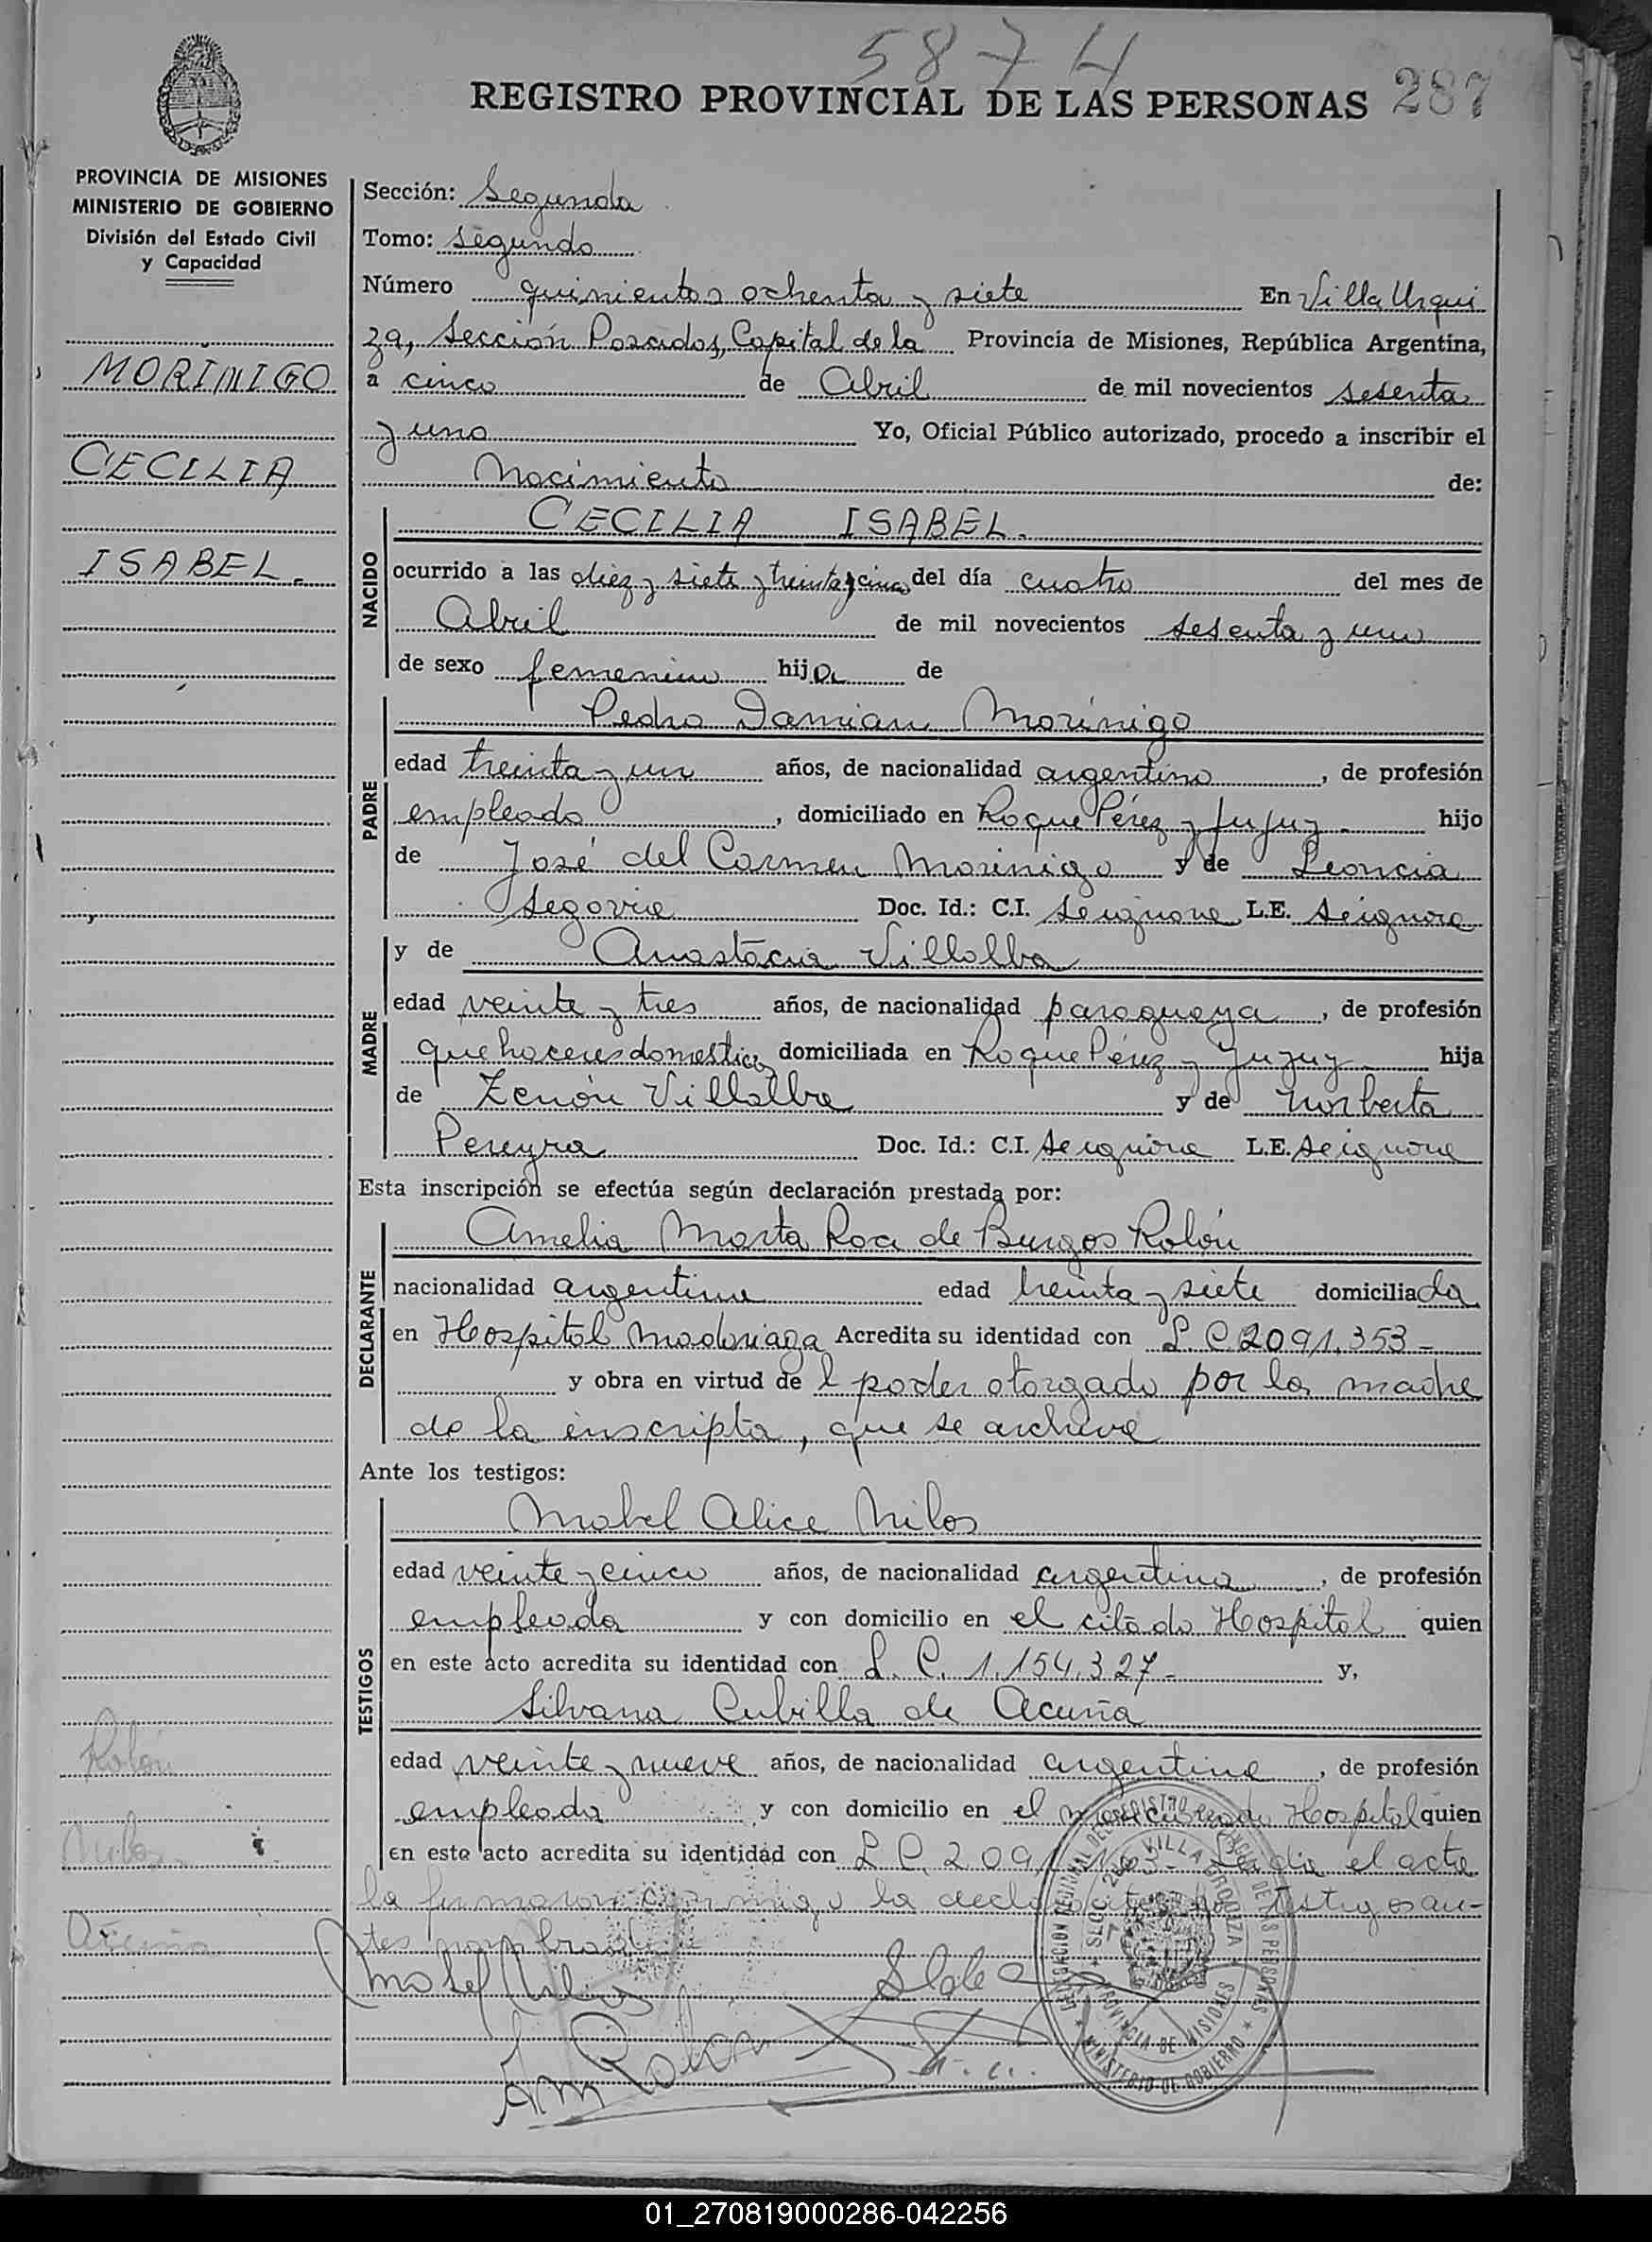 5874
REGISTRO PROVINCIAL DE LAS PERSONAS 287
PROVINCIA DE MISIONES
MINISTERIO DE GOBIERNO
División del Estado Civil
y Capacidad
MORINIGO
CECILIA
ISABEL.
Rolón
Milos
Acuña
Sección: Segunda
Tomo: Segundo
Número quinientos ochenta y siete En Villa Urqui
za, Sección Posadas, Capital de la Provincia de Misiones, República Argentina,
a cinco de Abril de mil novecientos sesenta
y uno Yo, Oficial Público autorizado, procedo a inscribir el
Nacimiento de:
NACIDO
CECILIA ISABEL.
ocurrido a las diez y siete y treinta y cinco del día cuatro del mes de
Abril de mil novecientos sesenta y uno
de sexo femenino hija de
PADRE
Pedro Damian Morinigo
edad treinta y un años, de nacionalidad argentino, de profesión
empleado, domiciliado en Roque Pérez y Jujuy hijo
de José del Carmen Morinigo y de Leoncia
Segovia Doc. Id.: C.I. Se ignora L.E. Se ignora
MADRE
y de Anastacia Villalba
edad veinte y tres años, de nacionalidad paraguaya, de profesión
quehaceres domesticos domiciliada en Roque Pérez y Jujuy hija
de Zenón Villalba y de Norberta
Pereyra Doc. Id.: C.I. Se ignora L.E. Se ignora
Esta inscripción se efectúa según declaración prestada por:
DECLARANTE
Amelia Marta Roa de Burgos Rolón
nacionalidad argentina edad treinta y siete domiciliada
en Hospital Madariaga Acredita su identidad con L. C. 2091.353-
y obra en virtud de l poder otorgado por la madre
de la inscripta, que se archiva
Ante los testigos:
TESTIGOS
Mabel Alice Milos
edad veinte y cinco años, de nacionalidad argentina, de profesión
empleada y con domicilio en el citado Hospital quien
en este acto acredita su identidad con L. C. 1.154.327- y,
Silvana Cubilla de Acuña
edad veinte y nueve años, de nacionalidad argentina, de profesión
empleada y con domicilio en el mencionado Hospital quien
en este acto acredita su identidad con L C. 209 Leida el acta
la firmaron conmigo la declarante y testigos an-
tes nombrados
Mabel Milos
Am Rolón
DELEGACION REGIONAL DEL REGISTRO PROVINCIAL DE LAS PERSONAS
MINISTERIO DE GOBIERNO
SECC. 2da VILLA URQUIZA
PROVINCIA DE MISIONES
01_270819000286-042256